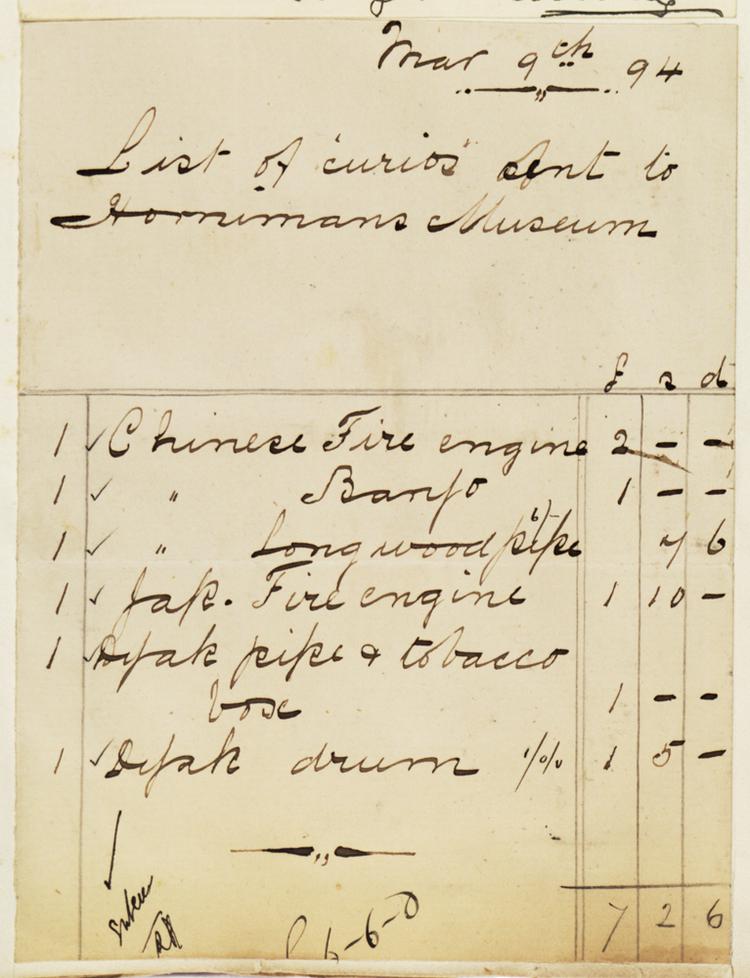 Mar 9th 94
List of "curios" sent to
Hornimans Museum
£ s d
1 ✓ Chinese Fire engine 2 - -
1 ✓ " Banjo 1 - -
1 ✓ " Long wood pipe 6/- 7 6
1 ✓ Jap. Fire engine 1 10 -
1 ✓ Dyak pipe & tobacco
box 1 - -
1 ✓ Dyak drum 1/0/0 1 5 -
7 2 6
£ 6-6-0